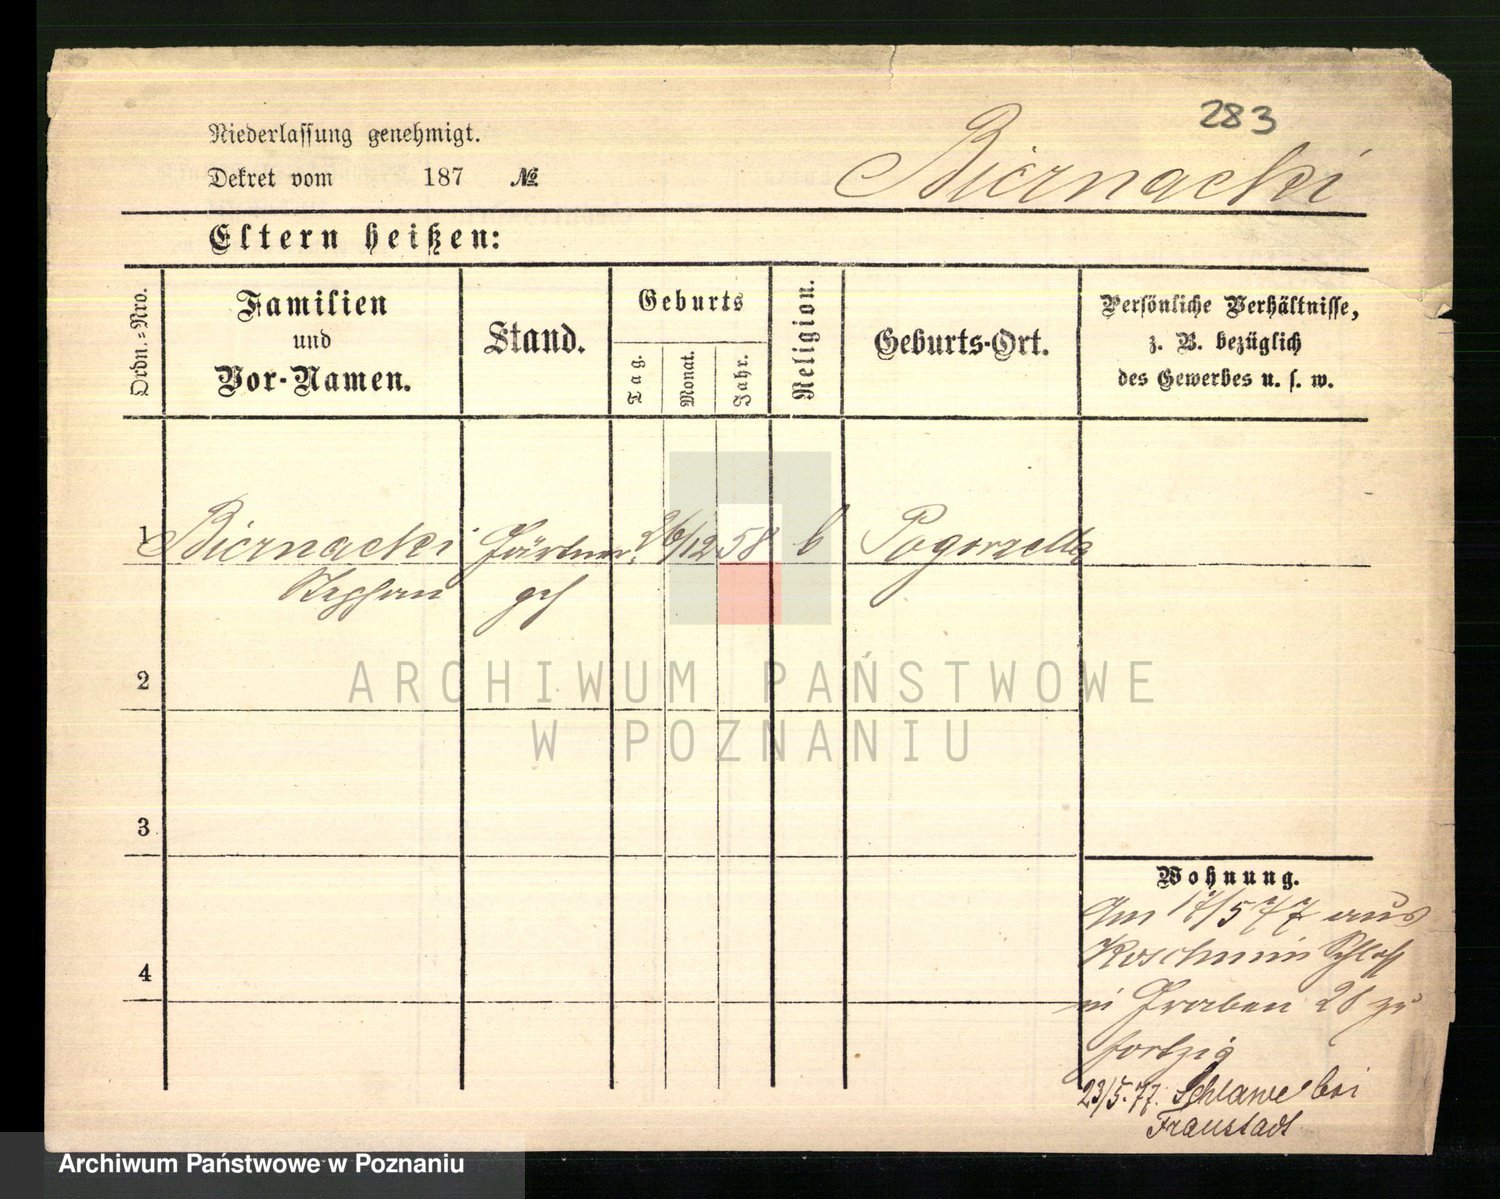 283
Niederlassung genehmigt.
Dekret vom 187 №
Biernacki
Eltern heißen:
Ordn.-Nro.
Familien
und
Vor-Namen.
Stand.
Geburts
Tag.
Monat.
Jahr.
Religion.
Geburts-Ort.
Persönliche Verhältnisse,
z. B. bezüglich
des Gewerbes u. s. w.
1 Biernacki Gärtner 26/12 58 Pogorzella
Stephan
2
3
4
ARCHIWUM PAŃSTWOWE
W POZNANIU
Wohnung.
Am 17/5 77 aus
Koschmin
in Graben 28 zu
23/5.77. Schlawe bei
Fraustadt
Archiwum Państwowe w Poznaniu